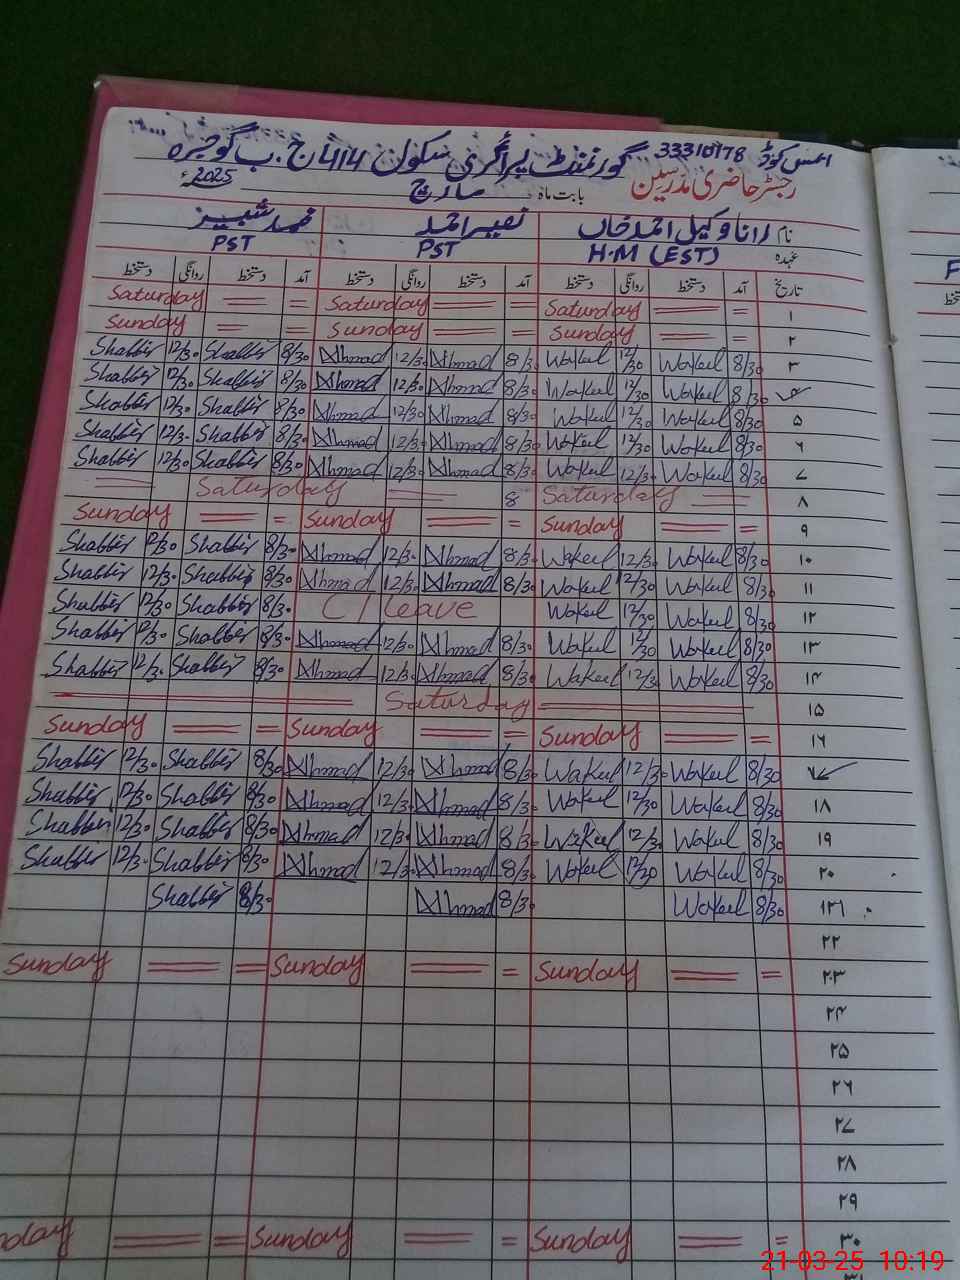 ایمس کوڈ 33310178 گورنمنٹ پرائمری سکول 414 ج۔ب گوجرہ
رجسٹر حاضری مدرسین بابت ماہ مارچ 2025ء
نام رانا وکیل احمد خاں نصیر احمد محمد شبیر
عہدہ H.M (EST) PST PST
تاریخ آمد دستخط روانگی دستخط آمد دستخط روانگی دستخط آمد دستخط روانگی دستخط
۱ = Saturday = Saturday = Saturday
۲ = Sunday = Sunday = Sunday
۳ 8/30 Wakeel 12/30 Wakeel 8/30 Ahmad 12/30 Ahmad 8/30 Shabbir 12/30 Shabbir
۴ 8/30 Wakeel 12/30 Wakeel 8/30 Ahmad 12/30 Ahmad 8/30 Shabbir 12/30 Shabbir
۵ 8/30 Wakeel 12/30 Wakeel 8/30 Ahmad 12/30 Ahmad 8/30 Shabbir 12/30 Shabbir
۶ 8/30 Wakeel 12/30 Wakeel 8/30 Ahmad 12/30 Ahmad 8/30 Shabbir 12/30 Shabbir
۷ 8/30 Wakeel 12/30 Wakeel 8/30 Ahmad 12/30 Ahmad 8/30 Shabbir 12/30 Shabbir
۸ Saturday 8 Saturday
۹ = Sunday = Sunday = Sunday
۱۰ 8/30 Wakeel 12/30 Wakeel 8/30 Ahmad 12/30 Ahmad 8/30 Shabbir 12/30 Shabbir
۱۱ 8/30 Wakeel 12/30 Wakeel 8/30 Ahmad 12/30 Ahmad 8/30 Shabbir 12/30 Shabbir
۱۲ 8/30 Wakeel 12/30 Wakeel C/Leave 8/30 Shabbir 12/30 Shabbir
۱۳ 8/30 Wakeel 12/30 Wakeel 8/30 Ahmad 12/30 Ahmad 8/30 Shabbir 12/30 Shabbir
۱۴ 8/30 Wakeel 12/30 Wakeel 8/30 Ahmad 12/30 Ahmad 8/30 Shabbir 12/30 Shabbir
۱۵ Saturday
۱۶ = Sunday = Sunday = Sunday
۱۷ 8/30 Wakeel 12/30 Wakeel 8/30 Ahmad 12/30 Ahmad 8/30 Shabbir 12/30 Shabbir
۱۸ 8/30 Wakeel 12/30 Wakeel 8/30 Ahmad 12/30 Ahmad 8/30 Shabbir 12/30 Shabbir
۱۹ 8/30 Wakeel 12/30 Wakeel 8/30 Ahmad 12/30 Ahmad 8/30 Shabbir 12/30 Shabbir
۲۰ 8/30 Wakeel 12/30 Wakeel 8/30 Ahmad 12/30 Ahmad 8/30 Shabbir 12/30 Shabbir
۲۱ 8/30 Wakeel 8/30 Ahmad 8/30 Shabbir
۲۲
۲۳ = Sunday = Sunday = Sunday
۲۴
۲۵
۲۶
۲۷
۲۸
۲۹
۳۰ = Sunday = Sunday = Sunday
۳۱
21-03-25 10:19